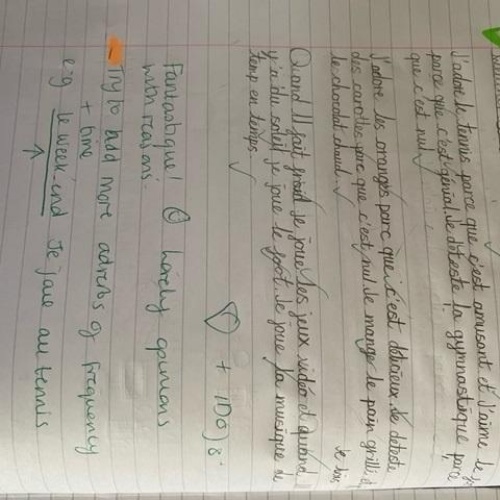 J'adore le tennis parce que c'est amusant et J'aime le
parce que c'est génial. Je déteste la gymnastique parce
que c'est nul
J'adore les oranges parce que c'est délicieux. Je deteste
des carottes parce que c'est nul. Je mange le pain grillé
Je bois
le chocolat chaud.
Quand Il fait froid je joue les jeux vidéo et quand
y'a du soleil je joue le foot. Je joue la musique de
temp en temps.
Fantastique! lovely opinions
with reasons.
Try to add more adverbs of frequency
+ time
e.g le week-end Je joue au tennis